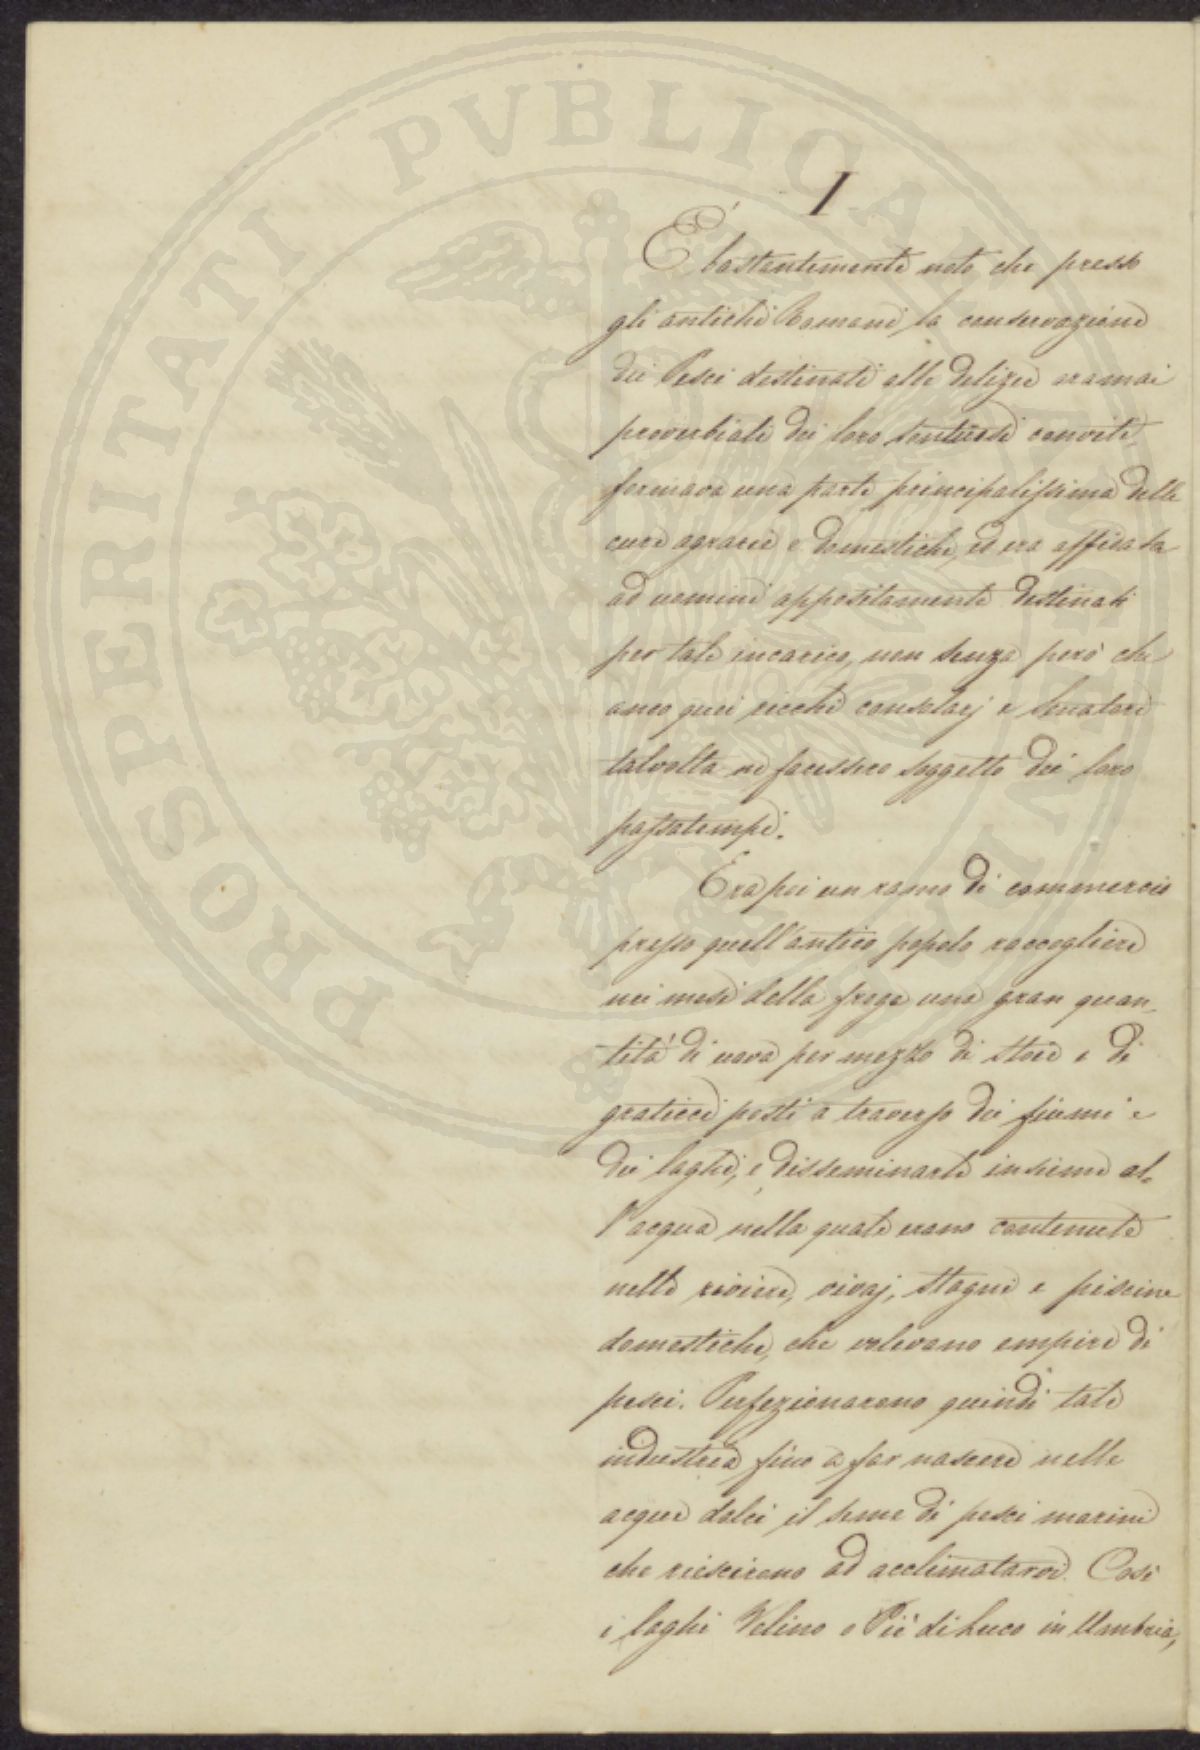 PROSPERITATI PVBLICAE
I
È bastantemente noto che presso
gli antichi Romani, la conservazione
dei Pesci destinati alle delizie oramai
proverbiali dei loro sontuosi conviti,
formava una parte principalissima delle
cure agrarie e domestiche, ed era affidata
ad uomini appositamente destinati
per tale incarico, non senza però che
anco quei ricchi consolarj e Senatori
talvolta ne facessero soggetto dei loro
passatempi.
Era poi un ramo di commercio
presso quell'antico popolo raccogliere
nei mesi della frega una gran quan-
tità di uova per mezzo di stoie e di
graticci posti a traverso dei fiumi e
dei laghi, e disseminarle insieme al-
l'acqua nella quale erano contenute
nelle riviere, vivaj, stagni e piscine
domestiche, che volevano empire di
pesci. Perfezionarono quindi tale
industria fino a far nascere nelle
acque dolci il seme di pesci marini
che riescirono ad acclimatarvi. Così
i laghi Velino e Piè di Luco in Umbria,